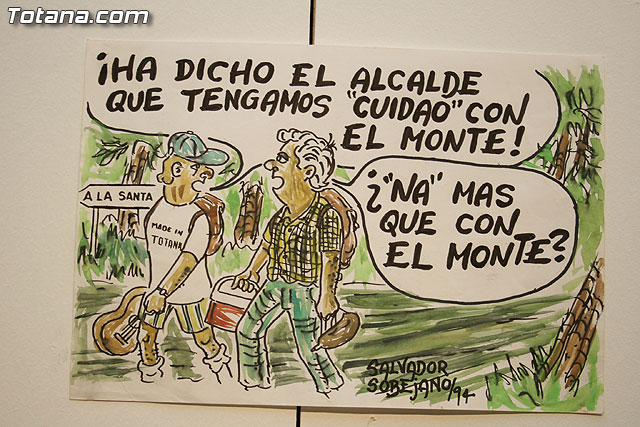 Totana.com
¡HA DICHO EL ALCALDE
QUE TENGAMOS "CUIDAO" CON
EL MONTE!
¿"NA" MAS
QUE CON
EL MONTE?
A LA SANTA
MADE IN
TOTANA
SALVADOR
SOBEJANO/94